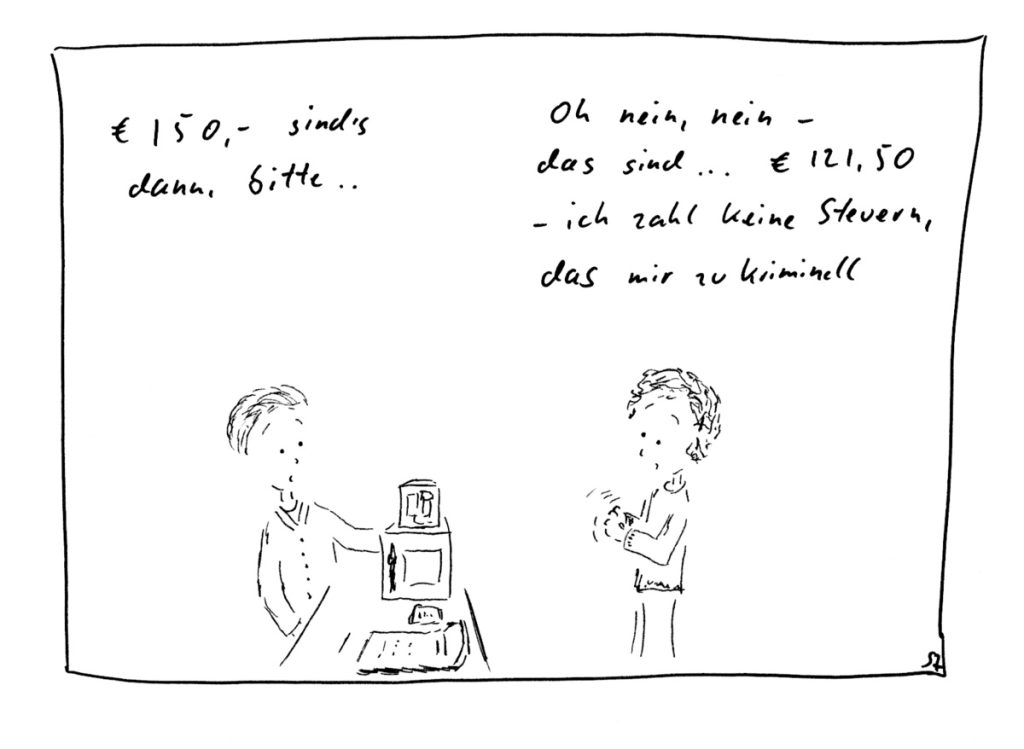 € 150,- sind's
dann, bitte..
Oh nein, nein -
das sind... € 121,50
- ich zahl keine Steuern,
das mir zu kriminell
SZ